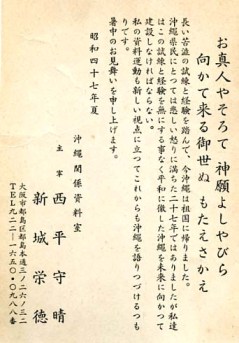 お真人やそろて 神願よしやびら
向かて来る御世ぬ もたえさかえ
長い苦澁の試練と経験を踏んで、今沖縄は祖国に帰りました。
沖縄県民にとつては悲しい怒りに満ちた二十七年ではありましたが私達
はこの試練と経験を無にする事なく平和に徹した沖縄を未来に向かつて
建設しなければならない。
私の資料運動も新しい視点に立つてこれからも沖縄を語りつづけるつも
りです。
暑中のお見舞いを申し上げます。
昭和四十七年夏
沖縄関係資料室
主宰 西平守晴
新城栄徳
大阪市都島区都島本通三ノ二六ノ三二
TEL九二二-一六五〇・〇九八八番